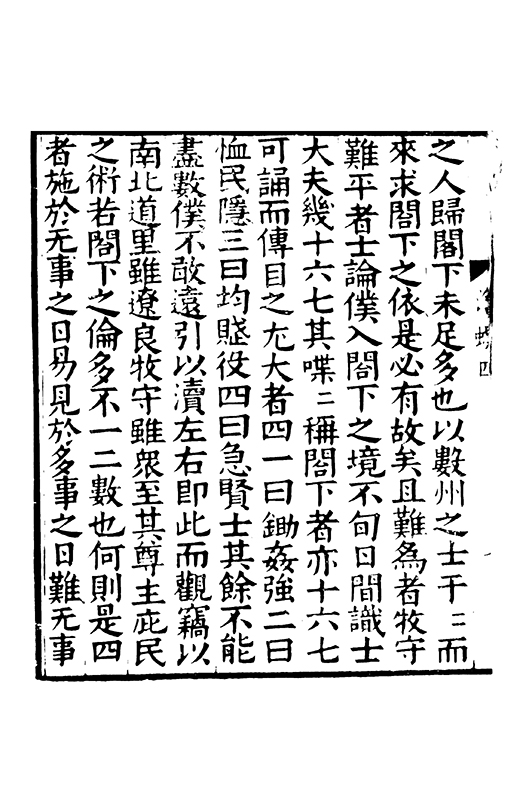 之人歸閣下未足多也以數州之士干〻而
來求閣下之依是必有故矣且難爲者牧守
難平者士論僕入閣下之境不旬日間識士
大夫幾十六七其喋〻稱閣下者亦十六七
可誦而傳目之尢大者四一曰鋤姦強二曰
恤民隱三曰均賦役四曰急賢士其餘不能
盡數僕不敢遠引以瀆左右即此而觀竊以
南北道里雖遼良牧守雖衆至其尊主庇民
之術若閣下之倫多不一二數也何則是四
者施於无事之日易見於多事之日難无事